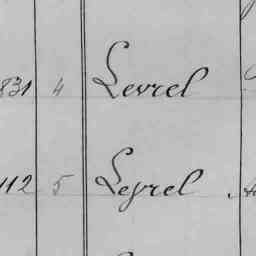 831 4 Levrel
112 5 Leyrel